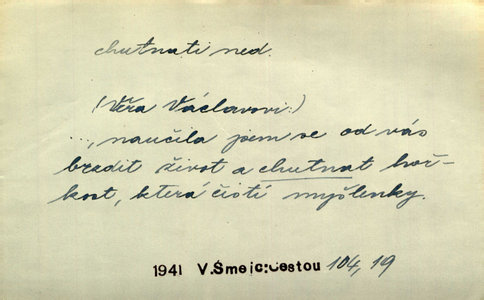 chutnati ned.
(Věra Václavovi:)
..., naučila jsem se od vás
brzdit život a chutnat hoř-
kost, která čistí myšlenky.
1941 V.Šmejc:Cestou 104, 19